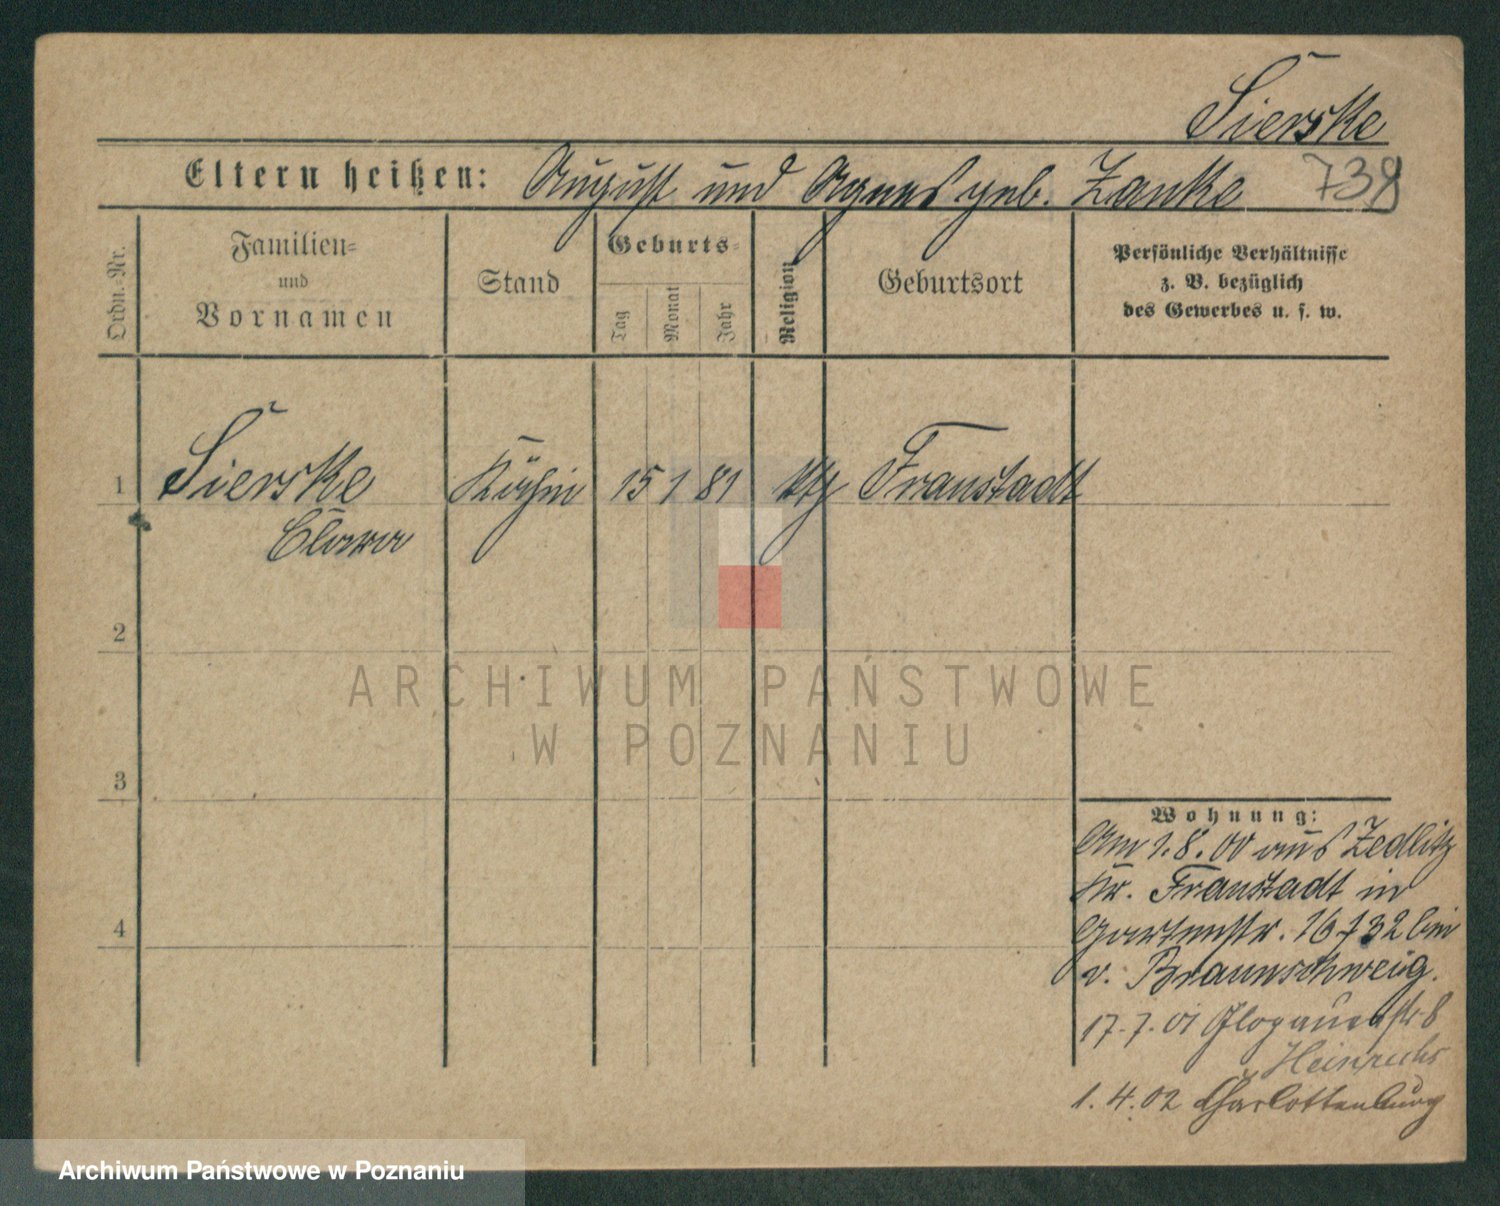 Sierske
Eltern heißen: August und Agnes geb. Zanke 738
Ordn.-Nr.
Familien-
und
Vornamen
Stand
Geburts-
Tag
Monat
Jahr
Religion
Geburtsort
Persönliche Verhältnisse
z. B. bezüglich
des Gewerbes u. s. w.
1 Sierske Köchin 15 1 81 kth Fraustadt
Clara
2
3
4
Wohnung:
Am 1.8.00 aus Zedlitz
Kr. Fraustadt in
Gartenstr. 16 132 bei
v. Braunschweig.
17.7.01 Glogauerstr. 8
Heinrichs
1.4.02 Charlottenburg
ARCHIWUM PAŃSTWOWE
W POZNANIU
Archiwum Państwowe w Poznaniu